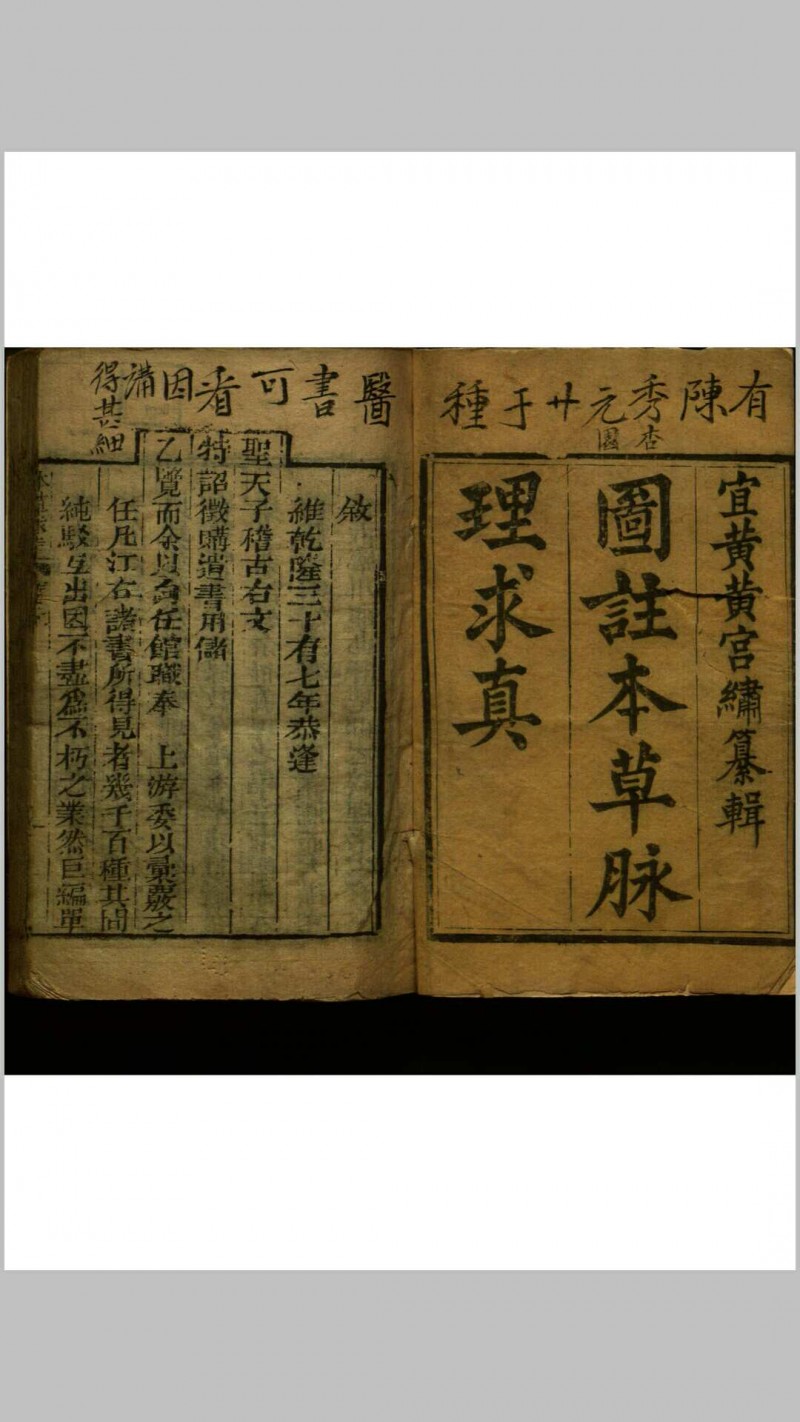 有陳秀元廾于種
杏園
宜黃黃宮繡纂輯
圖註本草脉
理求真
醫書可看因講
得甚細
敘
維乾隆三十有七年恭逢
聖天子稽古右文
特詔徵購遺書用儲
乙覽而余以向任館職奉 上游委以彙覈之
任凡江右諸書所得見者幾千百種其間
純駁互出因不盡爲不朽之業然巨編單